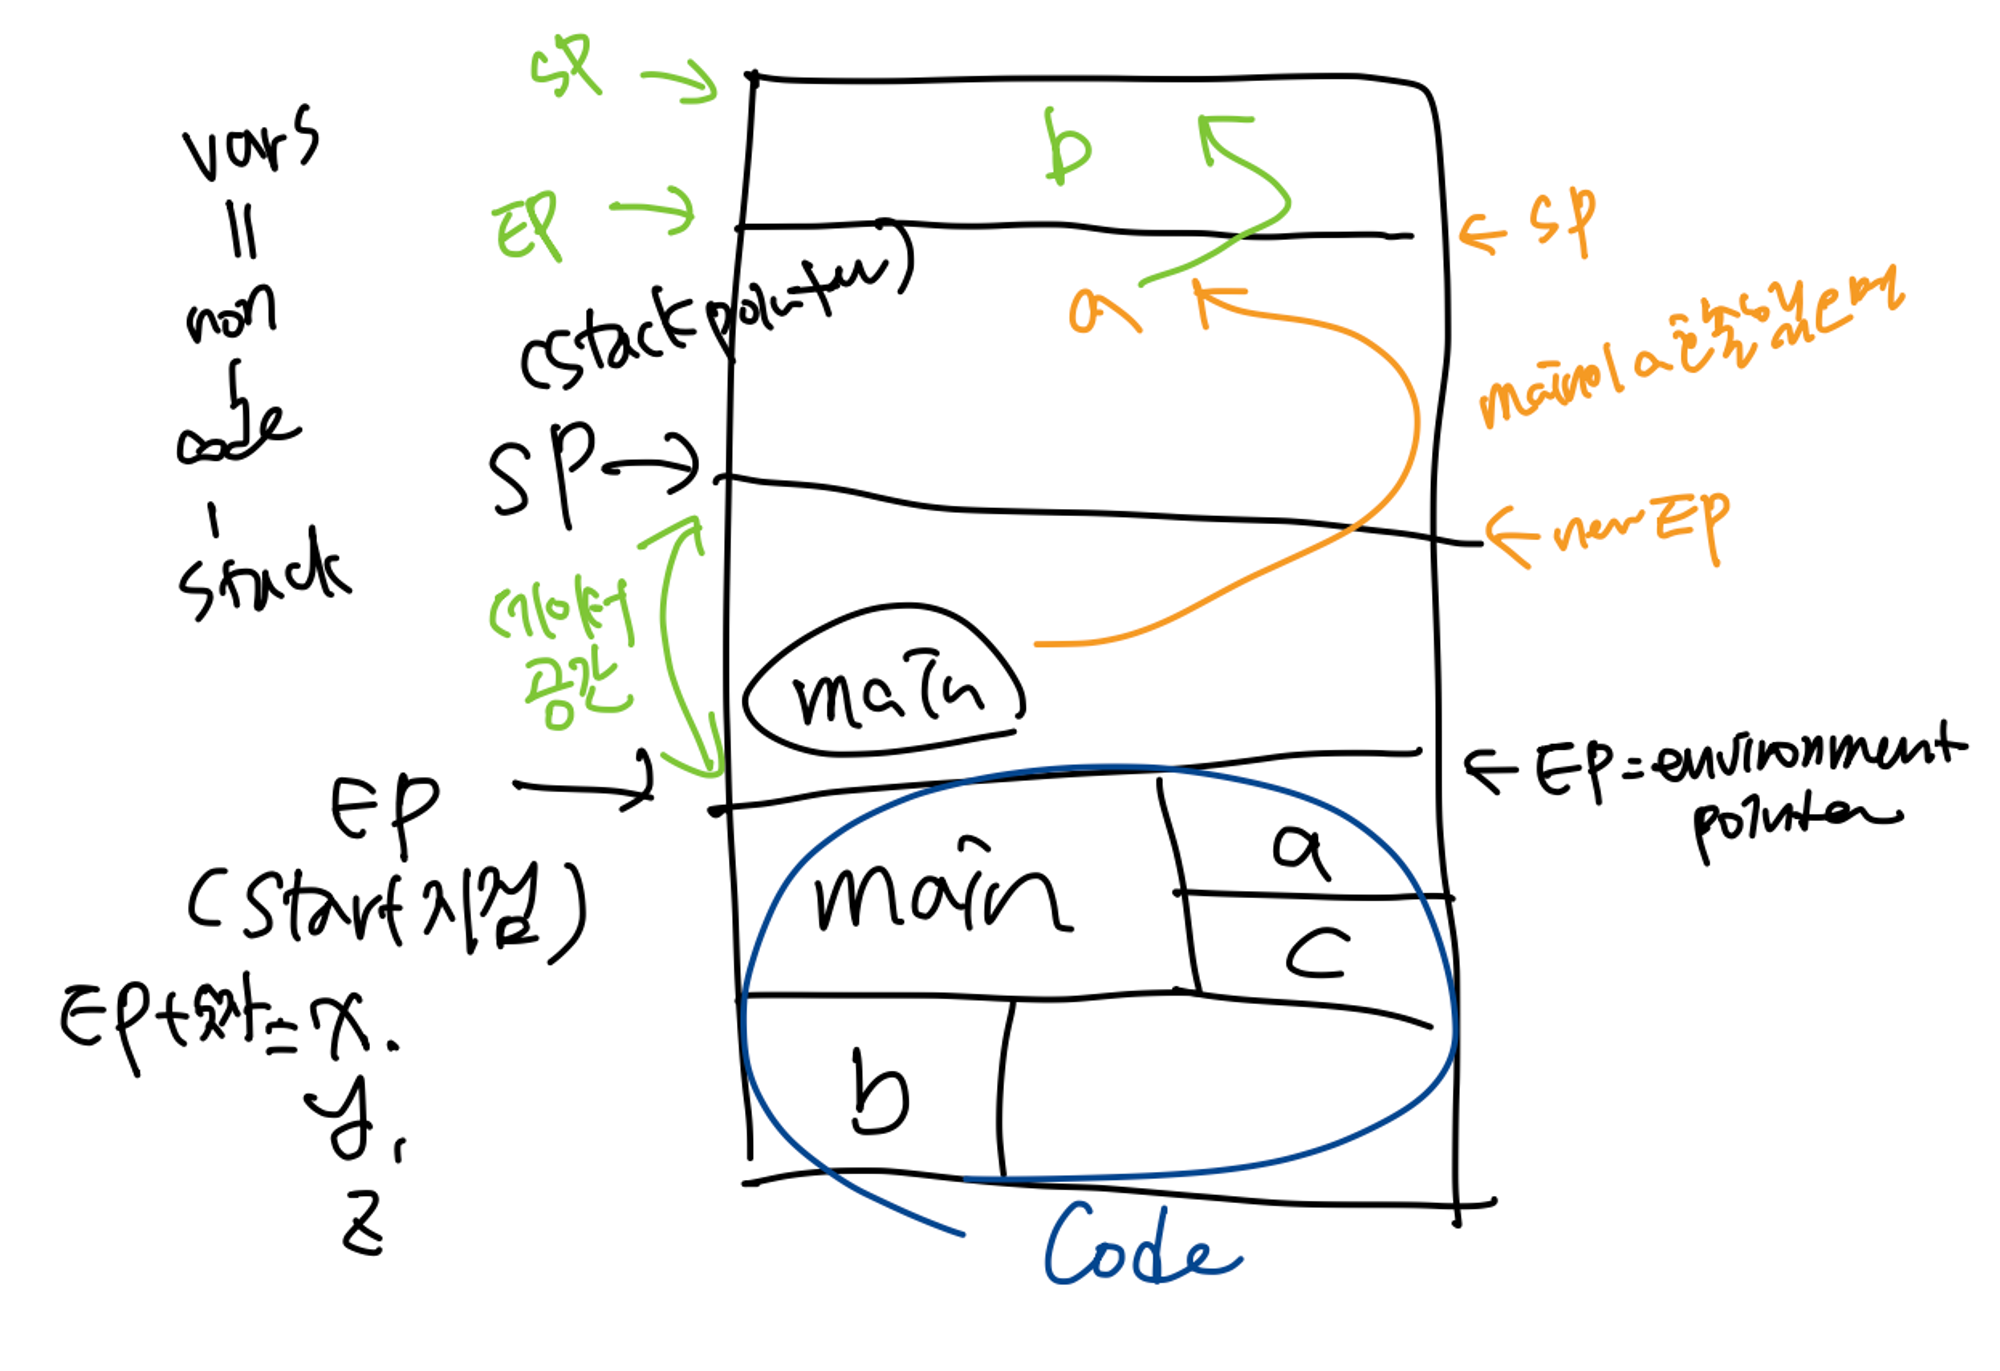 vars
=
non
code
-
stack
SP →
b
EP →
← SP
(stack pointer)
a
main이 a 호출하면
SP →
← new EP
데이터
공간
main
EP →
(start 지점)
← EP = environment
pointer
main
a
c
EP + 숫자 = x.
y,
z
b
Code